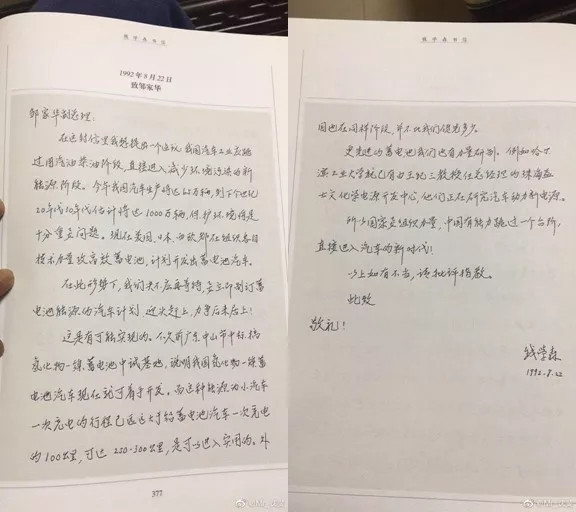 钱学森书信
1992年8月22日
致邹家华
邹家华副总理:
在这封信里我想提出一个建议:我国汽车工业应跳
过用汽油柴油阶段,直接进入减少环境污染的新
能源阶段。今年我国汽车生产将达60万辆,到下个世纪
20年代30年代估计将达1000万辆,保护环境将是
十分重要问题。现在美国、日本、西欧都在组织各自
技术力量攻高效蓄电池,计划开发出蓄电池汽车。
在此形势下,我们决不应再等待,要立即制订蓄
电池能源的汽车计划,迎头赶上,力争后来居上!
这是有可能实现的。不久前广东中山市中标搞
氢化物-镍蓄电池中试基地,说明我国氢化物-镍蓄
电池汽车现在就可着手开发。而这种能源的小汽车
一次充电的行程已远远大于铅蓄电池汽车一次充电
的100公里,可达250-300公里,是可以进入实用的。外
377
钱学森书信
国也在同样阶段,并不比我们领先多少。
更先进的蓄电池我们也有力量研制。例如哈尔
滨工业大学就已有由王纪三教授任总经理的珠海益
士文化学电源开发中心,他们正在研究汽车动力新电源。
所以国家要组织力量,中国有能力跳过一个台阶,
直接进入汽车的新时代!
以上如有不当,请批评指教。
此致
敬礼!
钱学森
1992.8.22